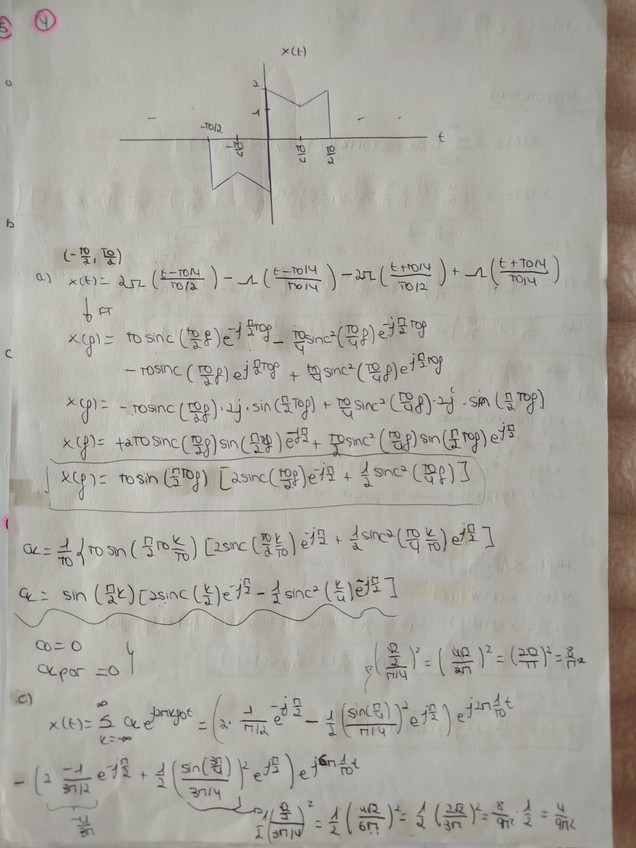 5 4
x(t)
2
1
-T0/2 -T0/4 T0/4 T0/2 t
a
b
(-T0/2, T0/2)
a) x(t) = 2Π((t-T0/4)/(T0/2)) - Λ((t-T0/4)/(T0/4)) - 2Π((t+T0/4)/(T0/2)) + Λ((t+T0/4)/(T0/4))
↓ FT
x(f) = T0 sinc(T0/2 f) e^(-j π/2 T0f) - T0/4 sinc²(T0/4 f) e^(-j π/2 T0f)
- T0 sinc(T0/2 f) e^(j π/2 T0f) + T0/4 sinc²(T0/4 f) e^(j π/2 T0f)
c
x(f) = - T0 sinc(T0/2 f)·2j·sin(π/2 T0f) + T0/4 sinc²(T0/4 f)·2j·sin(π/2 T0f)
x(f) = +2T0 sinc(T0/2 f) sin(π/2 T0f) e^(-j π/2) + T0/2 sinc²(T0/4 f) sin(π/2 T0f) e^(j π/2)
x(f) = T0 sin(π/2 T0f) [2sinc(T0/2 f) e^(-j π/2) + 1/2 sinc²(T0/4 f)]
ak = 1/T0 { T0 sin(π/2 T0 k/T0) [2sinc(T0/2 k/T0) e^(-j π/2) + 1/2 sinc²(T0/4 k/T0) e^(j π/2)]
ak = sin(π/2 k) [2sinc(k/2) e^(-j π/2) - 1/2 sinc²(k/4) e^(-j π/2)]
a0 = 0
ak par = 0 }
((√2/2)/(π/4))² = (4√2/2π)² = (2√2/π)² = 8/π²
c)
x(t) = Σ k=-∞ ∞ ak e^(j2πkf0t) = (2· 1/(π/2) e^(-j π/2) - 1/2 (sin(π/4)/(π/4))² e^(j π/2)) e^(j2π 1/T0 t)
- (2 -1/(3π/2) e^(-j π/2) + 1/2 (sin(3π/4)/(3π/4))² e^(j π/2)) e^(j6π 1/T0 t)
-4/3π
1/2 ((√2/2)/(3π/4))² = 1/2 (4√2/6π)² = 1/2 (2√2/3π)² = 8/9π² · 1/2 = 4/9π²